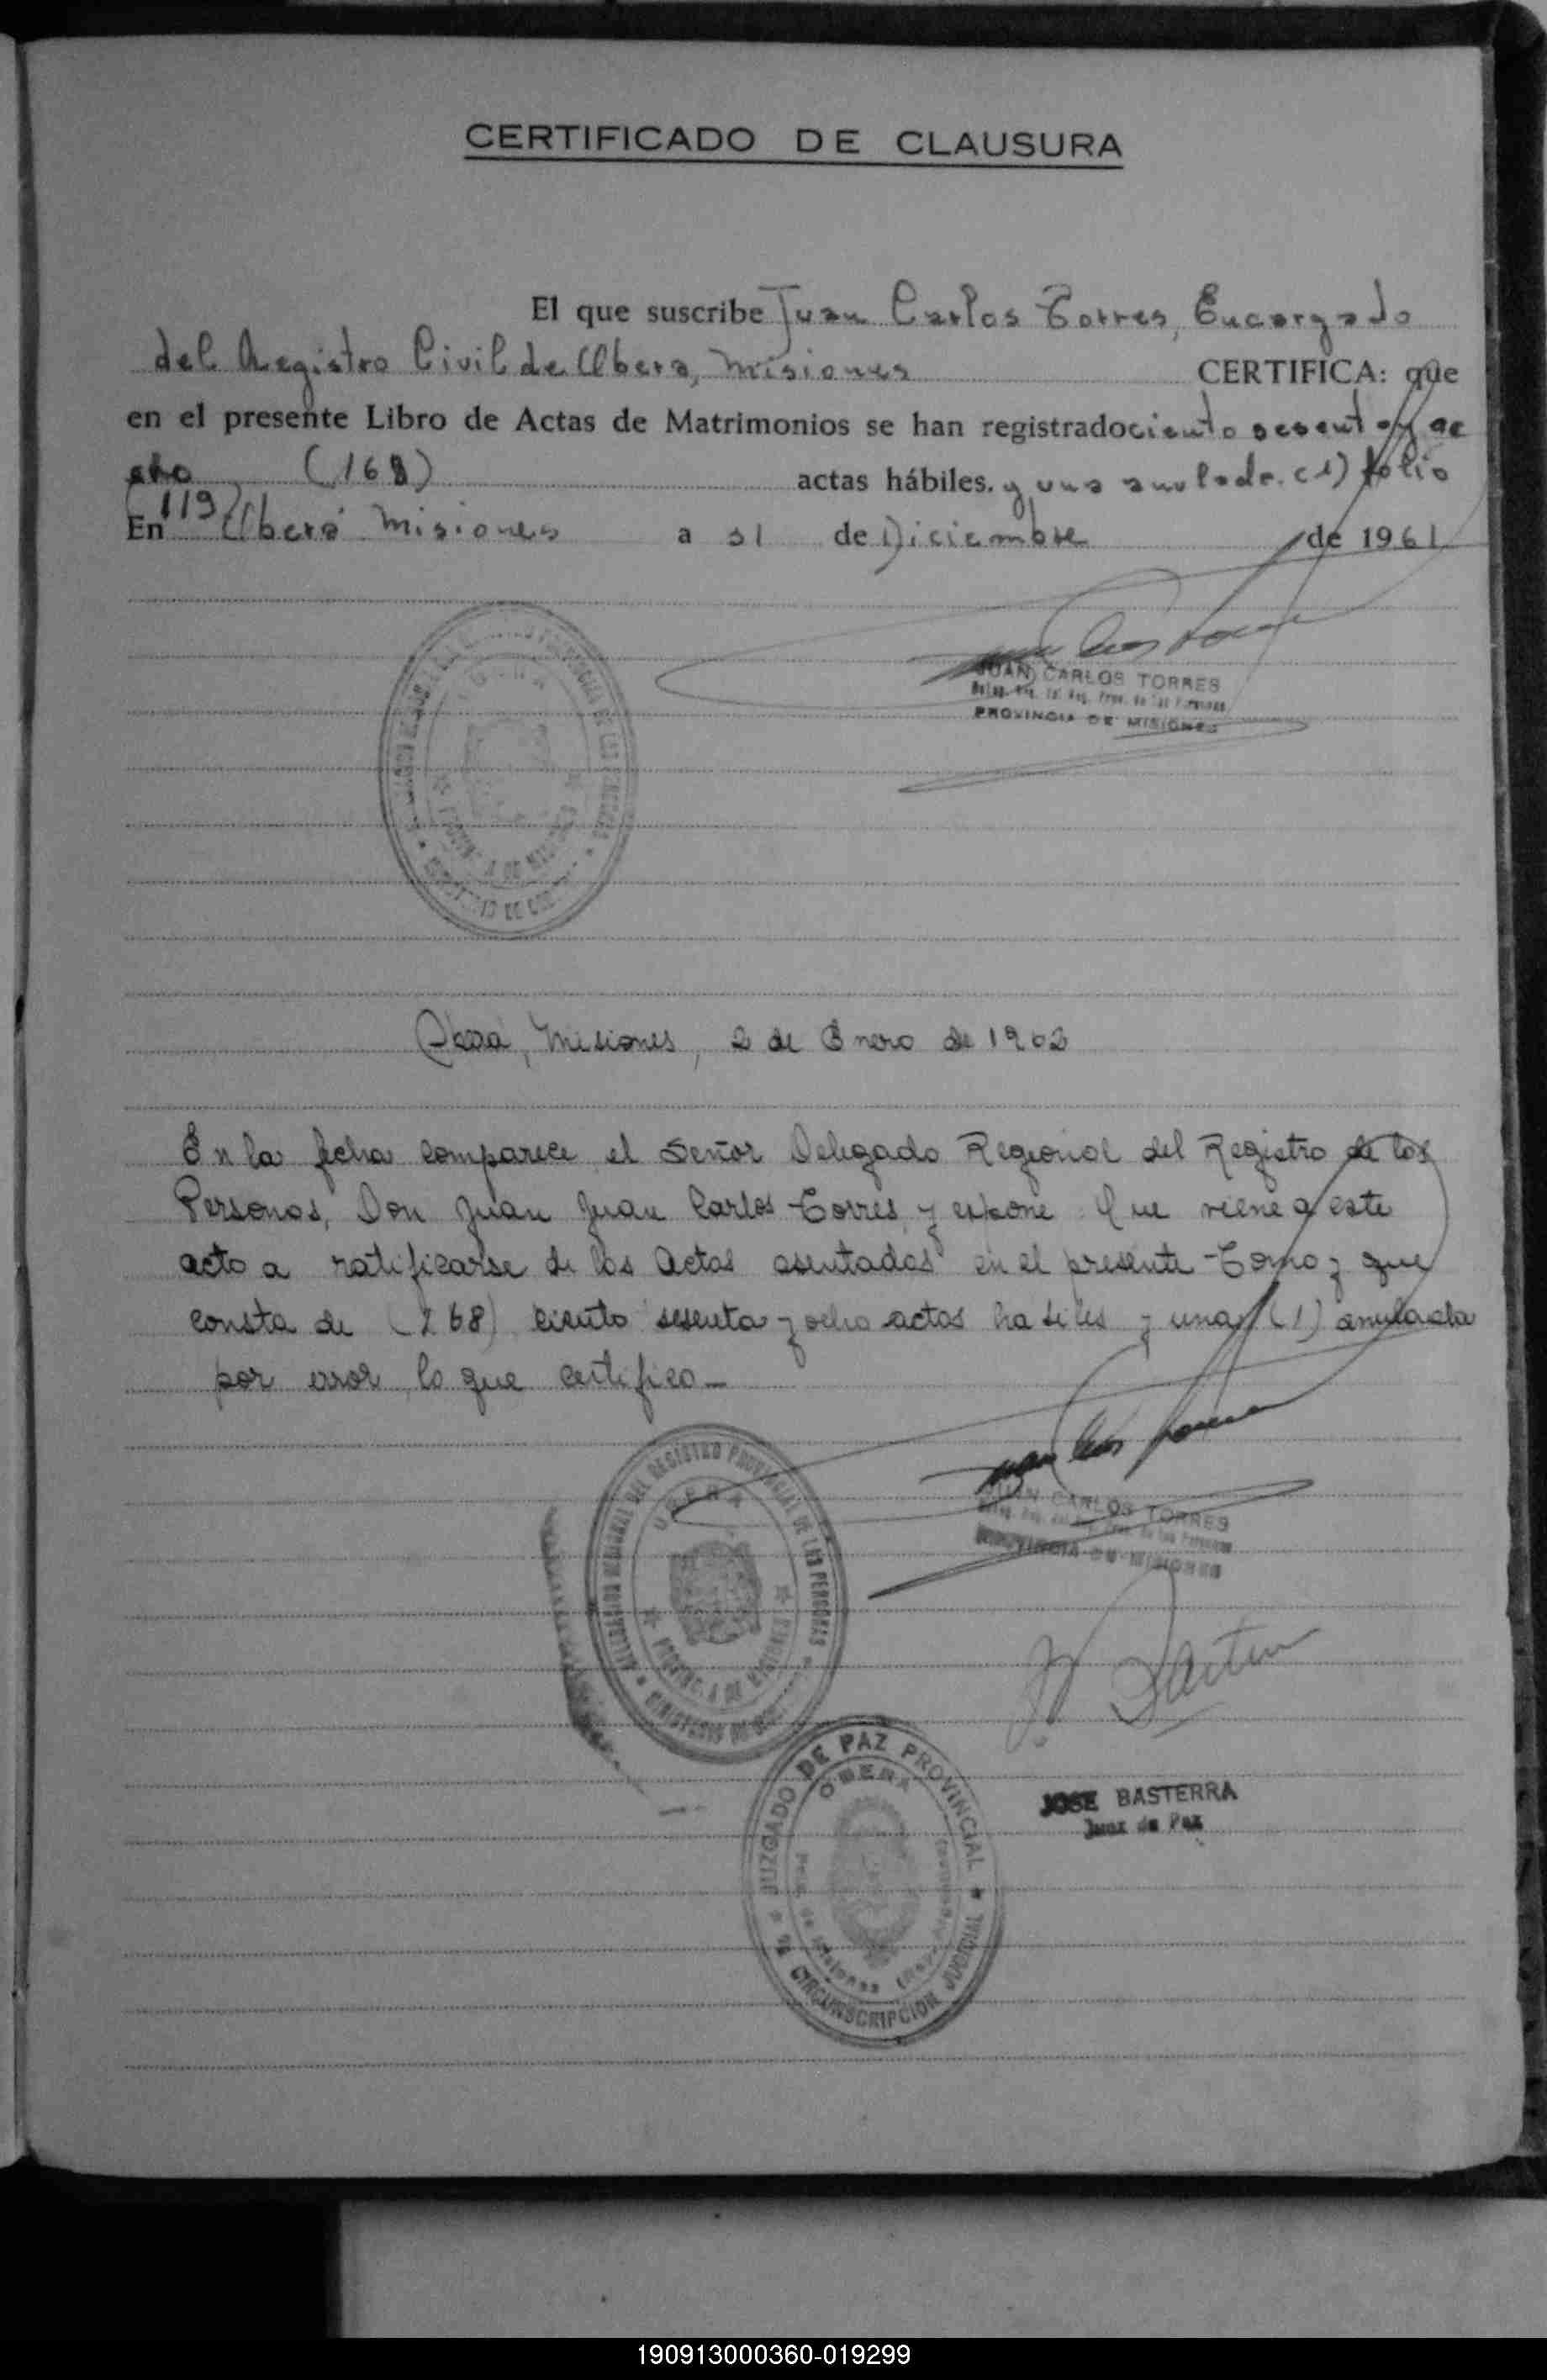 CERTIFICADO DE CLAUSURA
El que suscribe Juan Carlos Torres, Encargado
del Registro Civil de Obera, Misiones CERTIFICA: que
en el presente Libro de Actas de Matrimonios se han registrado ciento sesent oy oc
eho (168) actas hábiles. y una anulada. (1) folio
(119)
En Oberá Misiones a 31 de Diciembre de 1961
JUAN CARLOS TORRES
Deleg. Reg. del Reg. Prov. de las Personas
PROVINCIA DE MISIONES
Obera, Misiones, 2 de Enero de 1962
En la fecha comparece el Señor Delegado Regional del Registro de las
Personas, Don Juan Juan Carlos Torres, y expone Que viene a este
acto a ratificarse de las Actas asentadas en el presente Tomo y que
consta de (168) ciento sesenta y ocho actas habiles y una (1) anulada
por error, lo que certifico -
DEL REGISTRO PROVINCIAL DE LAS PERSONAS
OBERA
PROVINCIA DE MISIONES
JUAN CARLOS TORRES
Deleg. Reg. del Reg. Prov. de las Personas
PROVINCIA DE MISIONES
JUZGADO DE PAZ PROVINCIAL
OBERA
CIRCUNSCRIPCION JUDICIAL
JOSE BASTERRA
Juez de Paz
190913000360-019299